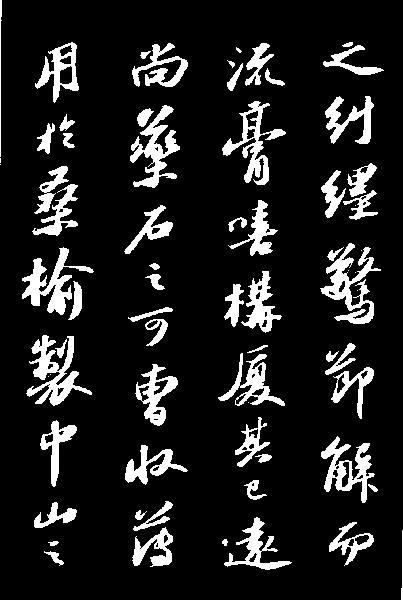 之糾纏驚節解而
流膏嘻構厦其已遠
尚藥石之可曹收薄
用於桑榆製中山之